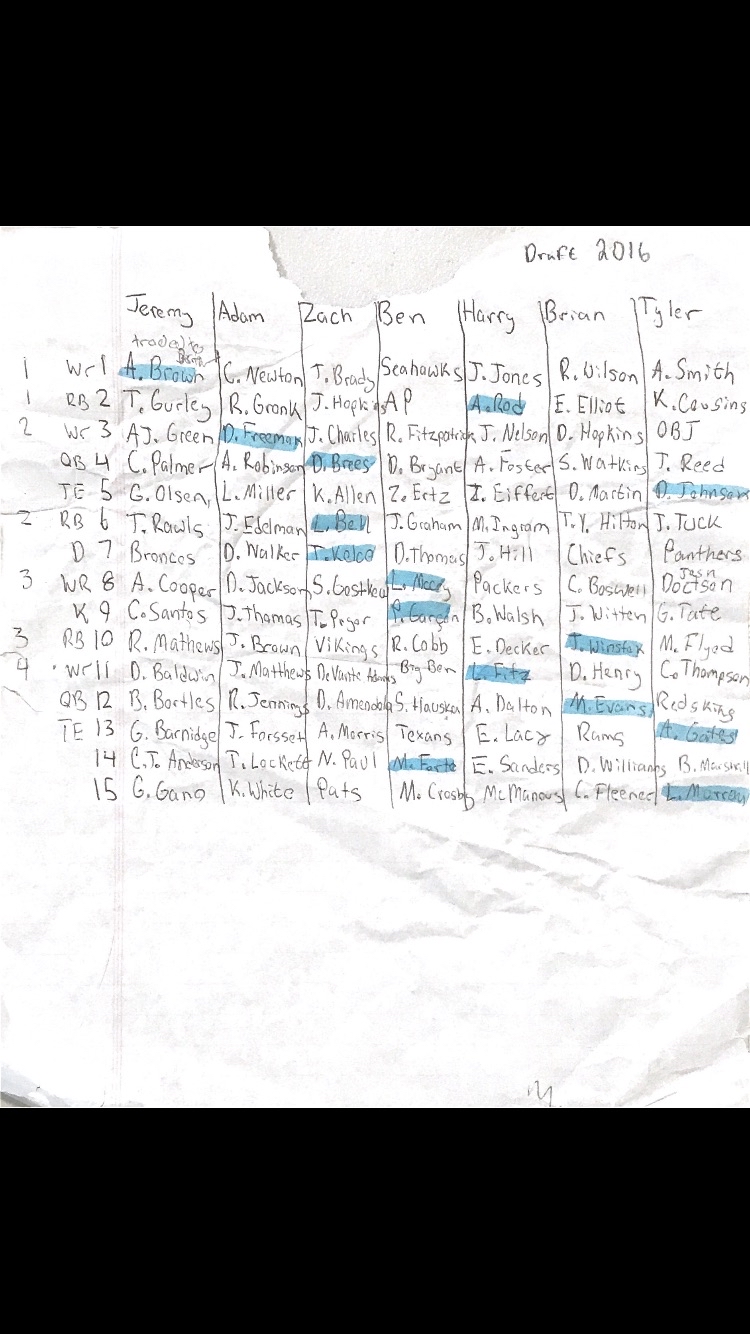 Draft 2016
Jeremy Adam Zach Ben Harry Brian Tyler
traded to
1 Wr 1 A. Brown C. Newton T. Brady Seahawks J. Jones R. Wilson A. Smith
1 RB 2 T. Gurley R. Gronk J. Hopkins AP A. Rod E. Elliot K. Cousins
2 Wr 3 AJ. Green D. Freeman J. Charles R. Fitzpatrick J. Nelson D. Hopkins OBJ
QB 4 C. Palmer A. Robinson D. Brees D. Bryant A. Foster S. Watkins J. Reed
TE 5 G. Olsen, L. Miller K. Allen Z. Ertz T. Eiffert D. Martin D. Johnson
2 RB 6 T. Rawls J. Edelman L. Bell J. Graham M. Ingram T. Y. Hilton J. TUCK
D 7 Broncos D. Walker T. Kelce D. Thomas J. Hill Chiefs Panthers
3 WR 8 A. Cooper D. Jackson S. Gostkow L. McCoy Packers C. Boswell Josh Doctson
K 9 C. Santos J. Thomas T. Pryor P. Garçon B. Walsh J. Witten G. Tate
3 RB 10 R. Mathews J. Brown Vikings R. Cobb E. Decker J. Winston M. Flyod
4 Wr 11 D. Baldwin J. Matthews DeVante Adams Big Ben L. Fitz D. Henry C. Thompson
QB 12 B. Bortles R. Jennings D. Amendola S. Hauska A. Dalton M. Evans Redskins
TE 13 G. Barnidge J. Forsset A. Morris Texans E. Lacy Rams A. Gates
14 C.J. Anderson T. Lockett N. Paul M. Forte E. Sanders D. Williams B. Marshall
15 G. Gano K. White Pats M. Crosby McManous C. Fleener L. Murray